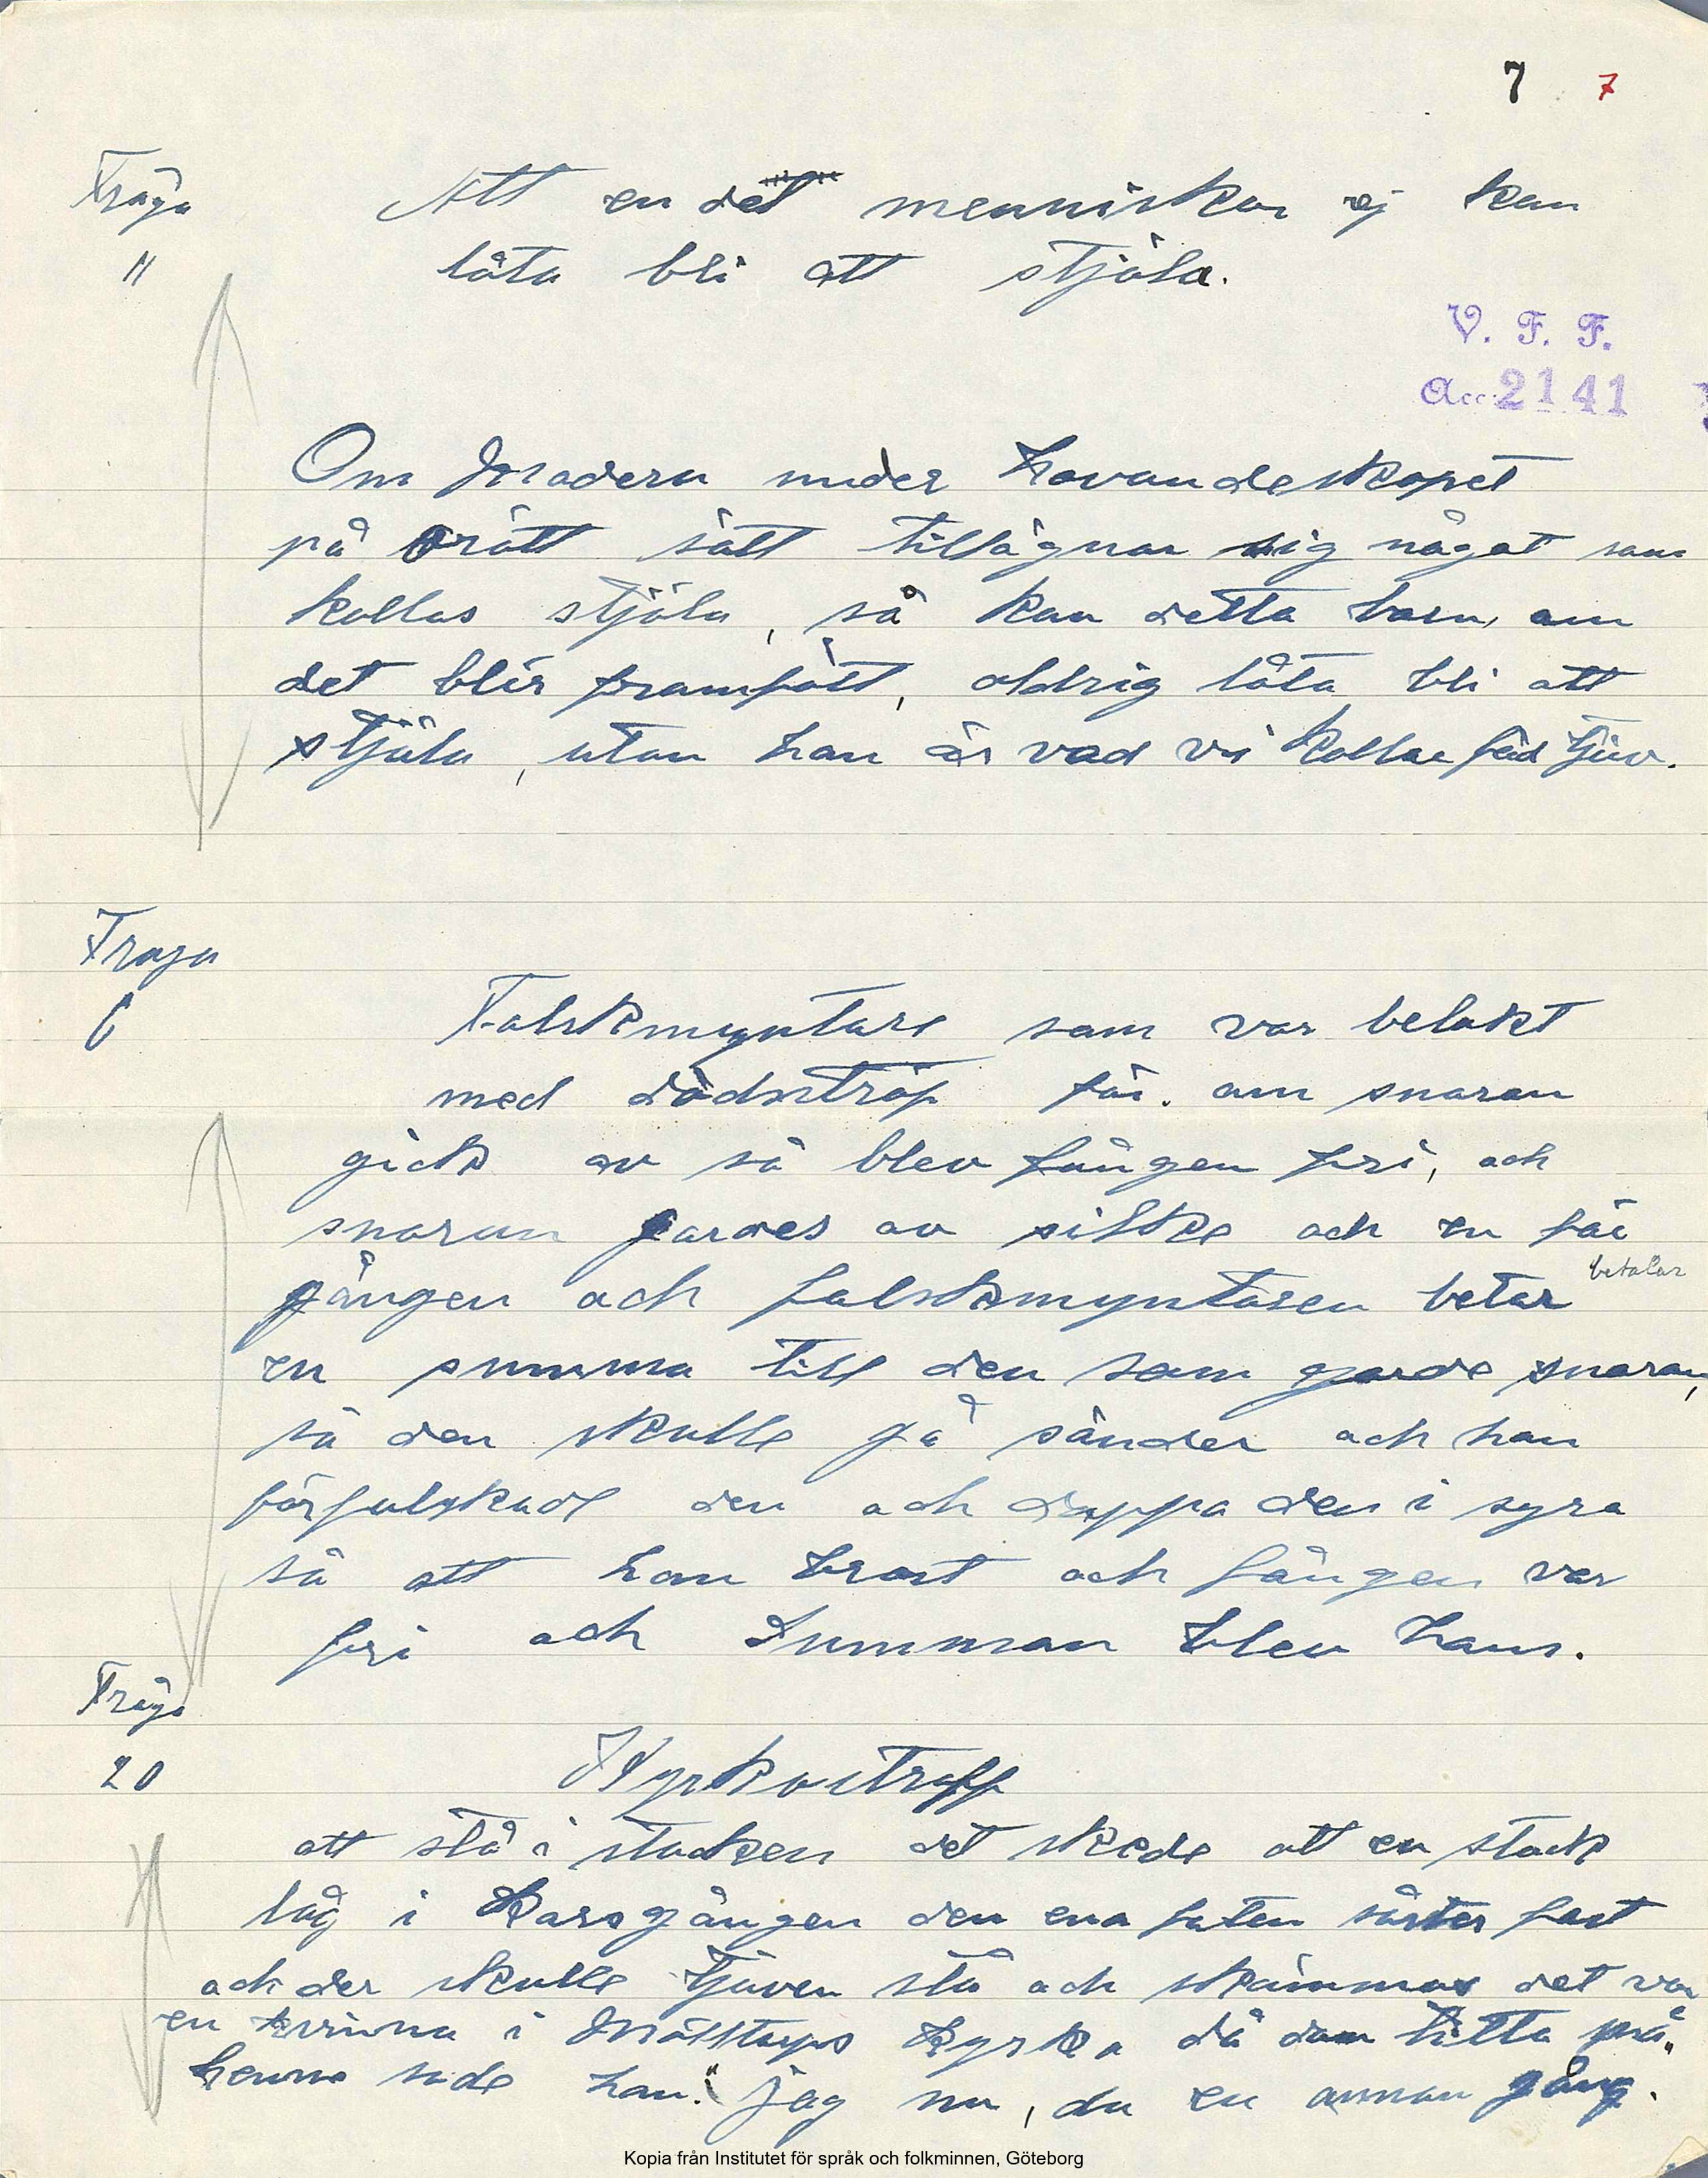 7 7
Fråga
11
Att en del menniskor ej kan
låta bli att stjäla.
V. F. F.
Acc. 2141
Om Modern under Havandeskapet
på orätt sätt tillägnar sig något som
kallas stjäla, så kan detta barn, om
det blir framfött, aldrig låta bli att
stjäla, utan han är vad vi kallar föd tjuv.
Fraga
6
Falskmyntare som var belakt
med dödsträf för. om snaran
gick av så blev fången fri, och
snaran gardes av silke och en för
gången och falskmyntaren betar betalar
en summa till den som garde snaran,
så den skulle gå sånder och han
förfalskade den och doppa den i syra
så att han brast och fången var
fri och Summan blev hans.
Fråga
20
Kyrkostraff
att stå i stocken det skede att en stock
låg i Korsgången den ena foten sättes fast
och der skulle tjuven stå och skämmas det var
en kvinna i Mölltorps Kyrka då dom titta på„
henne sade han. "jag nu, du en annan gång.
Kopia från Institutet för språk och folkminnen, Göteborg